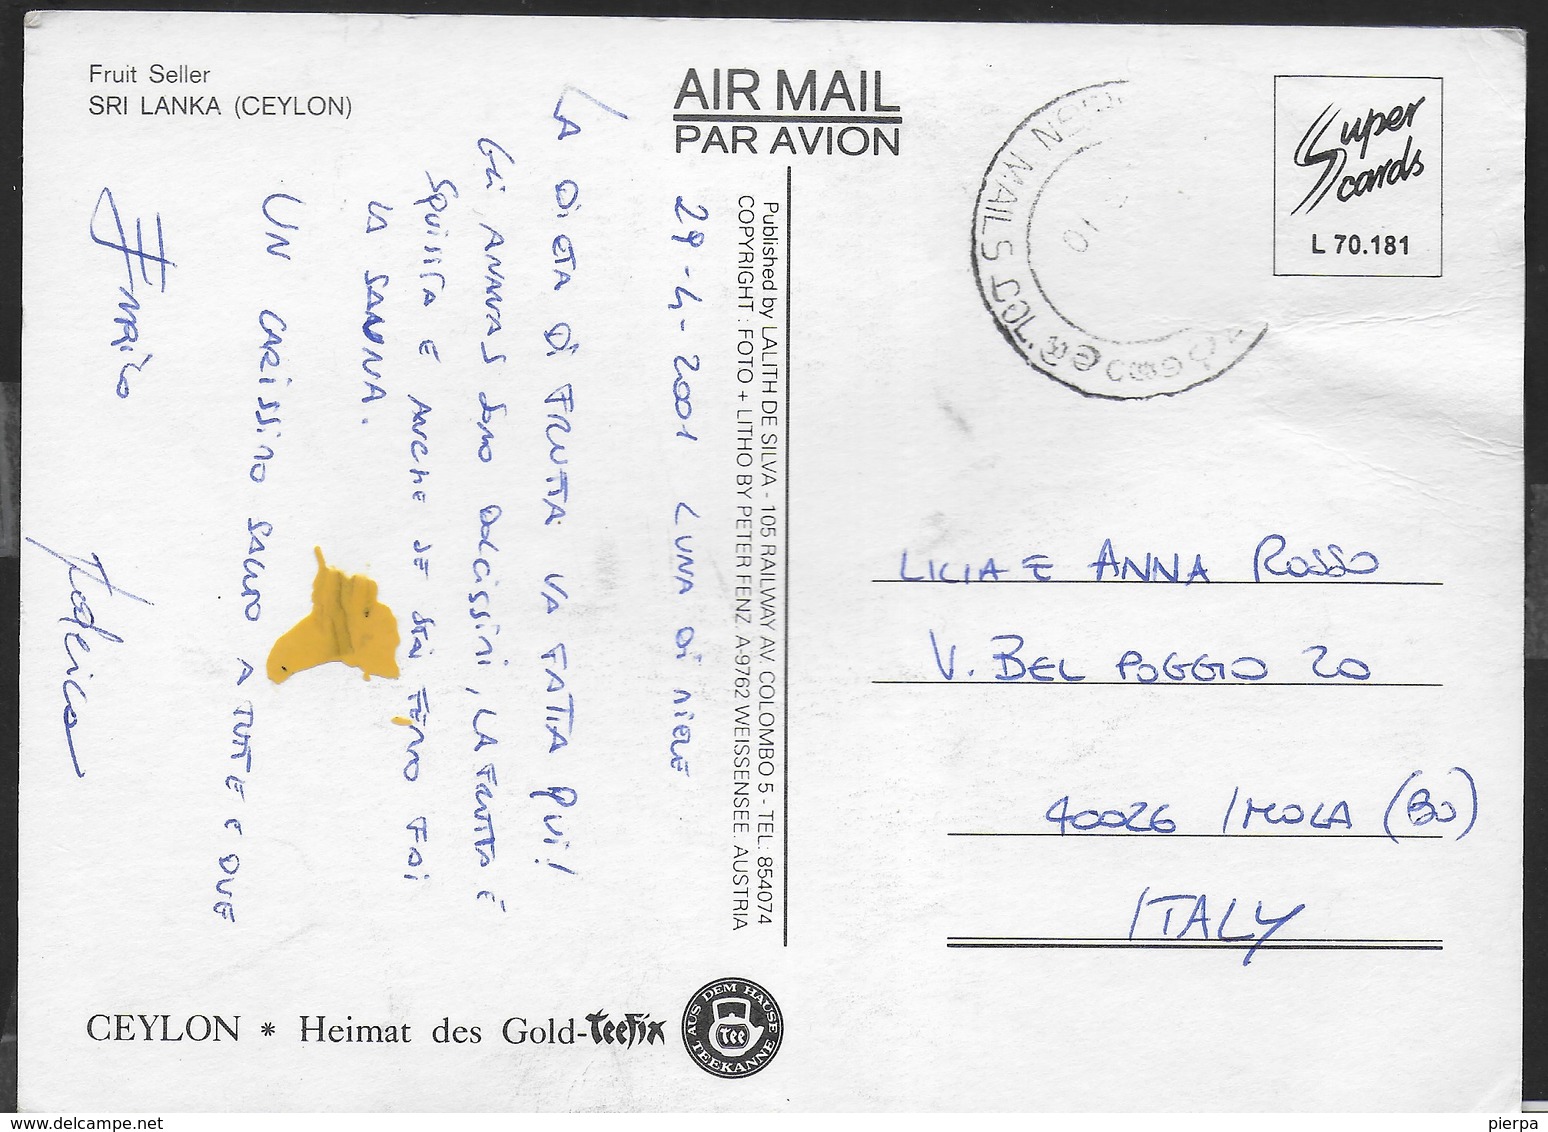 Fruit Seller
SRI LANKA (CEYLON)
AIR MAIL
PAR AVION
Super
cards
L 70.181
GN MAILS
Published by LALITH DE SILVA - 105 RAILWAY AV. COLOMBO 5 - TEL: 854074
COPYRIGHT : FOTO + LITHO BY PETER FENZ A-9762 WEISSENSEE. AUSTRIA
29-4-2001 LUNA DI MIELE
LA DIETA DI FRUTTA VA FATTA QUI!
GLI ANANAS SONO DOLCISSIMI, LA FRUTTA È
SQUISITA E ANCHE SE STAI FERMO FAI
LA SAUNA.
UN CARISSIMO SALUTO A TUTT E DUE
Enrico
Federica
LICIA E ANNA ROSSO
V. BEL POGGIO 20
40026 IMOLA (BO)
ITALY
CEYLON * Heimat des Gold-Teefix
AUS DEM HAUSE
TEE
TEEKANNE
pierpa